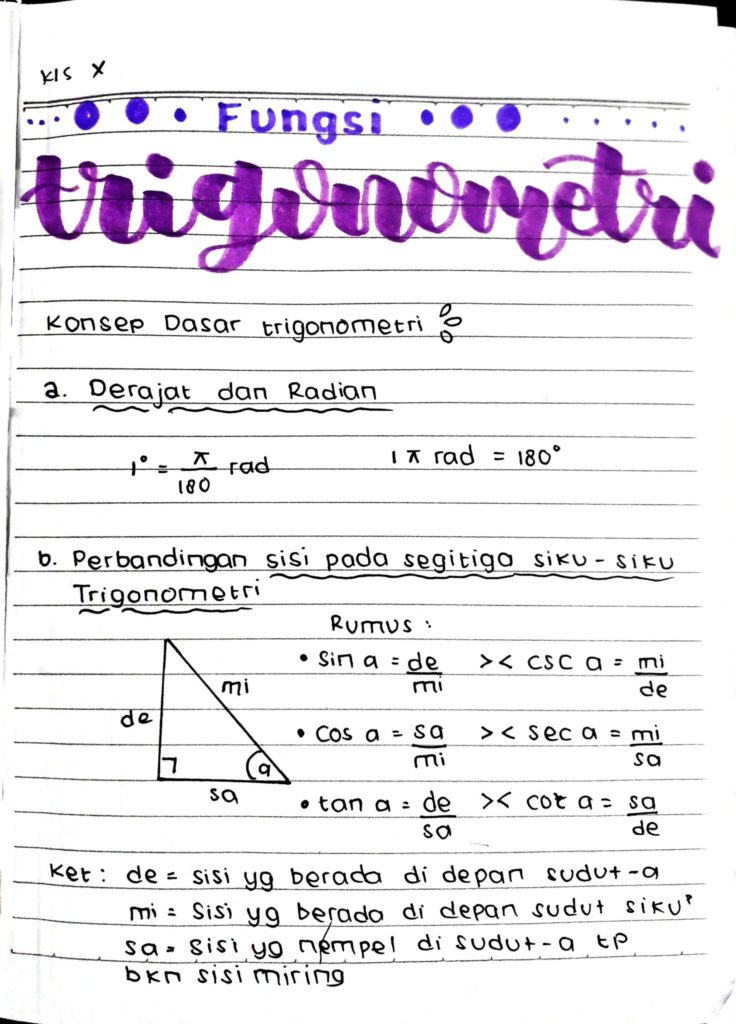 Kls X
Fungsi
trigonometri
Konsep Dasar trigonometri
a. Derajat dan Radian
1° = π/180 rad 1 π rad = 180°
b. Perbandingan sisi pada segitiga siku-siku
Trigonometri
Rumus :
• sin a = de/mi >< csc a = mi/de
• cos a = sa/mi >< sec a = mi/sa
• tan a = de/sa >< cot a = sa/de
de
mi
a
sa
Ket : de = sisi yg berada di depan sudut-a
mi = Sisi yg berada di depan sudut siku²
sa = Sisi yg nempel di sudut-a tp
bkn sisi miring